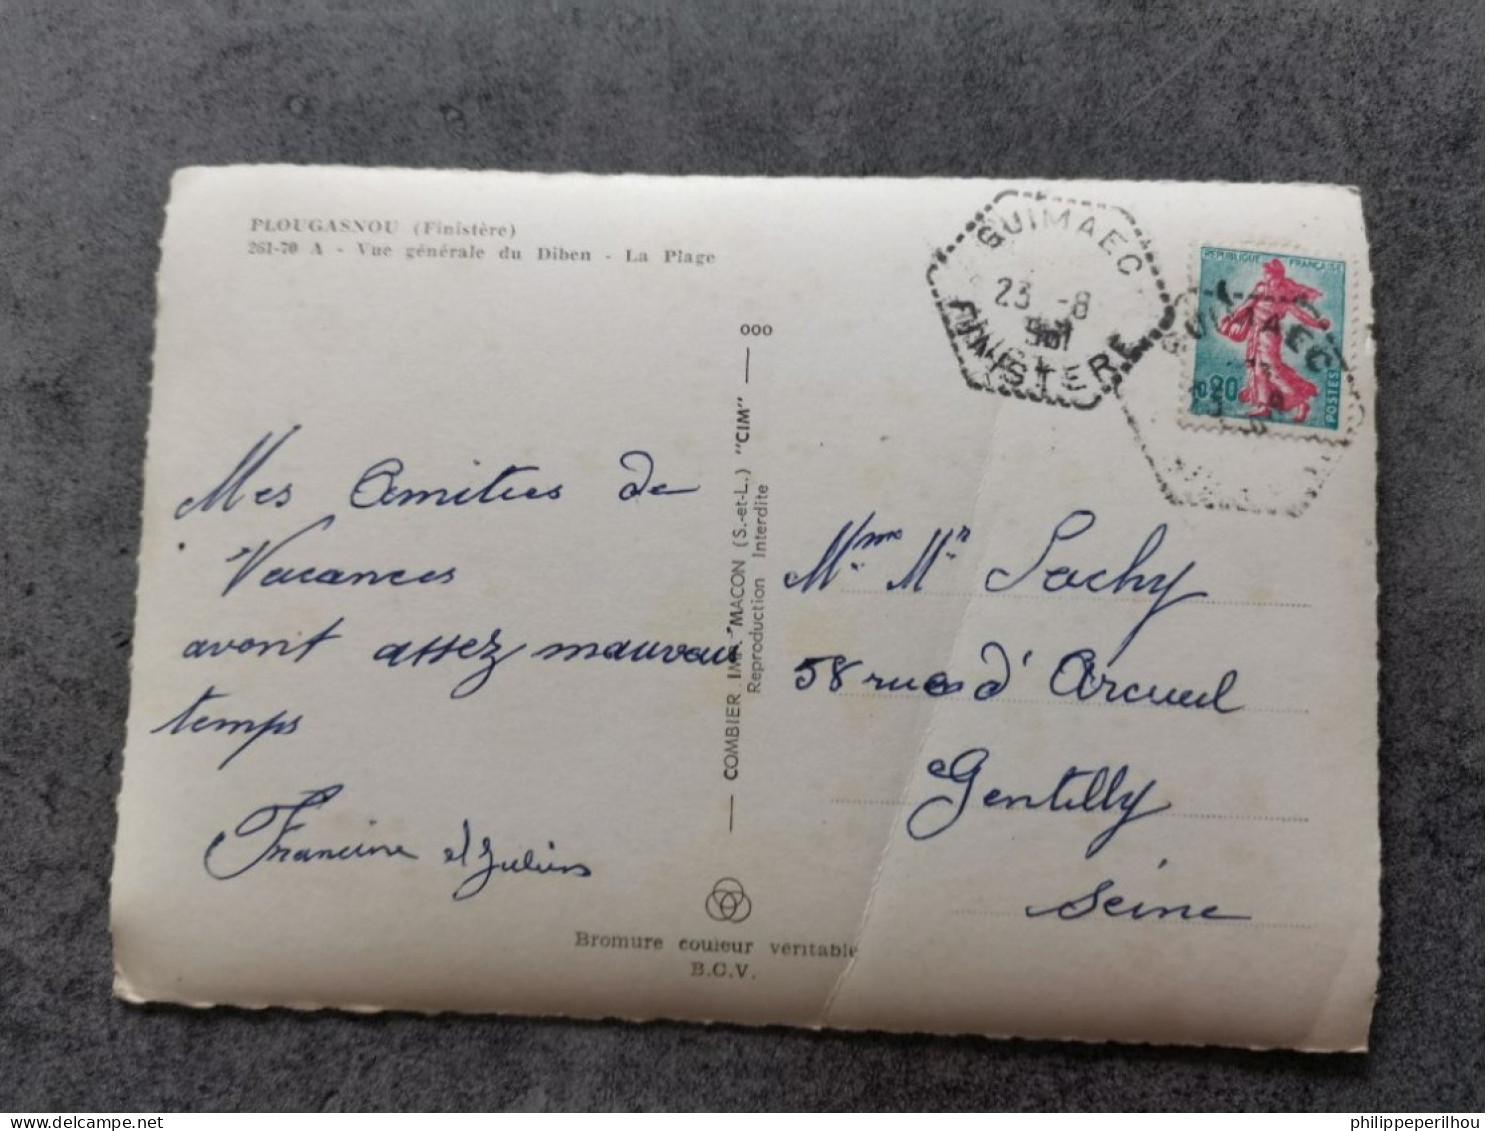 PLOUGASNOU (Finistère)
261-70 A - Vue générale du Diben - La Plage
GUIMAEC
23 -8
FINISTERE
REPUBLIQUE FRANÇAISE
0,20
POSTES
GUIMAEC
ooo
COMBIER IMP. MACON (S.-et-L.) "CIM"
Reproduction Interdite
Mes Amities de
Vacances
avont assez mauvais
temps
Francine et Julien
Mme Mr Sachy
58 rue d'Arcueil
Gentilly
Seine
Bromure couleur véritable
B.C.V.
www.delcampe.net
philippeperilhou